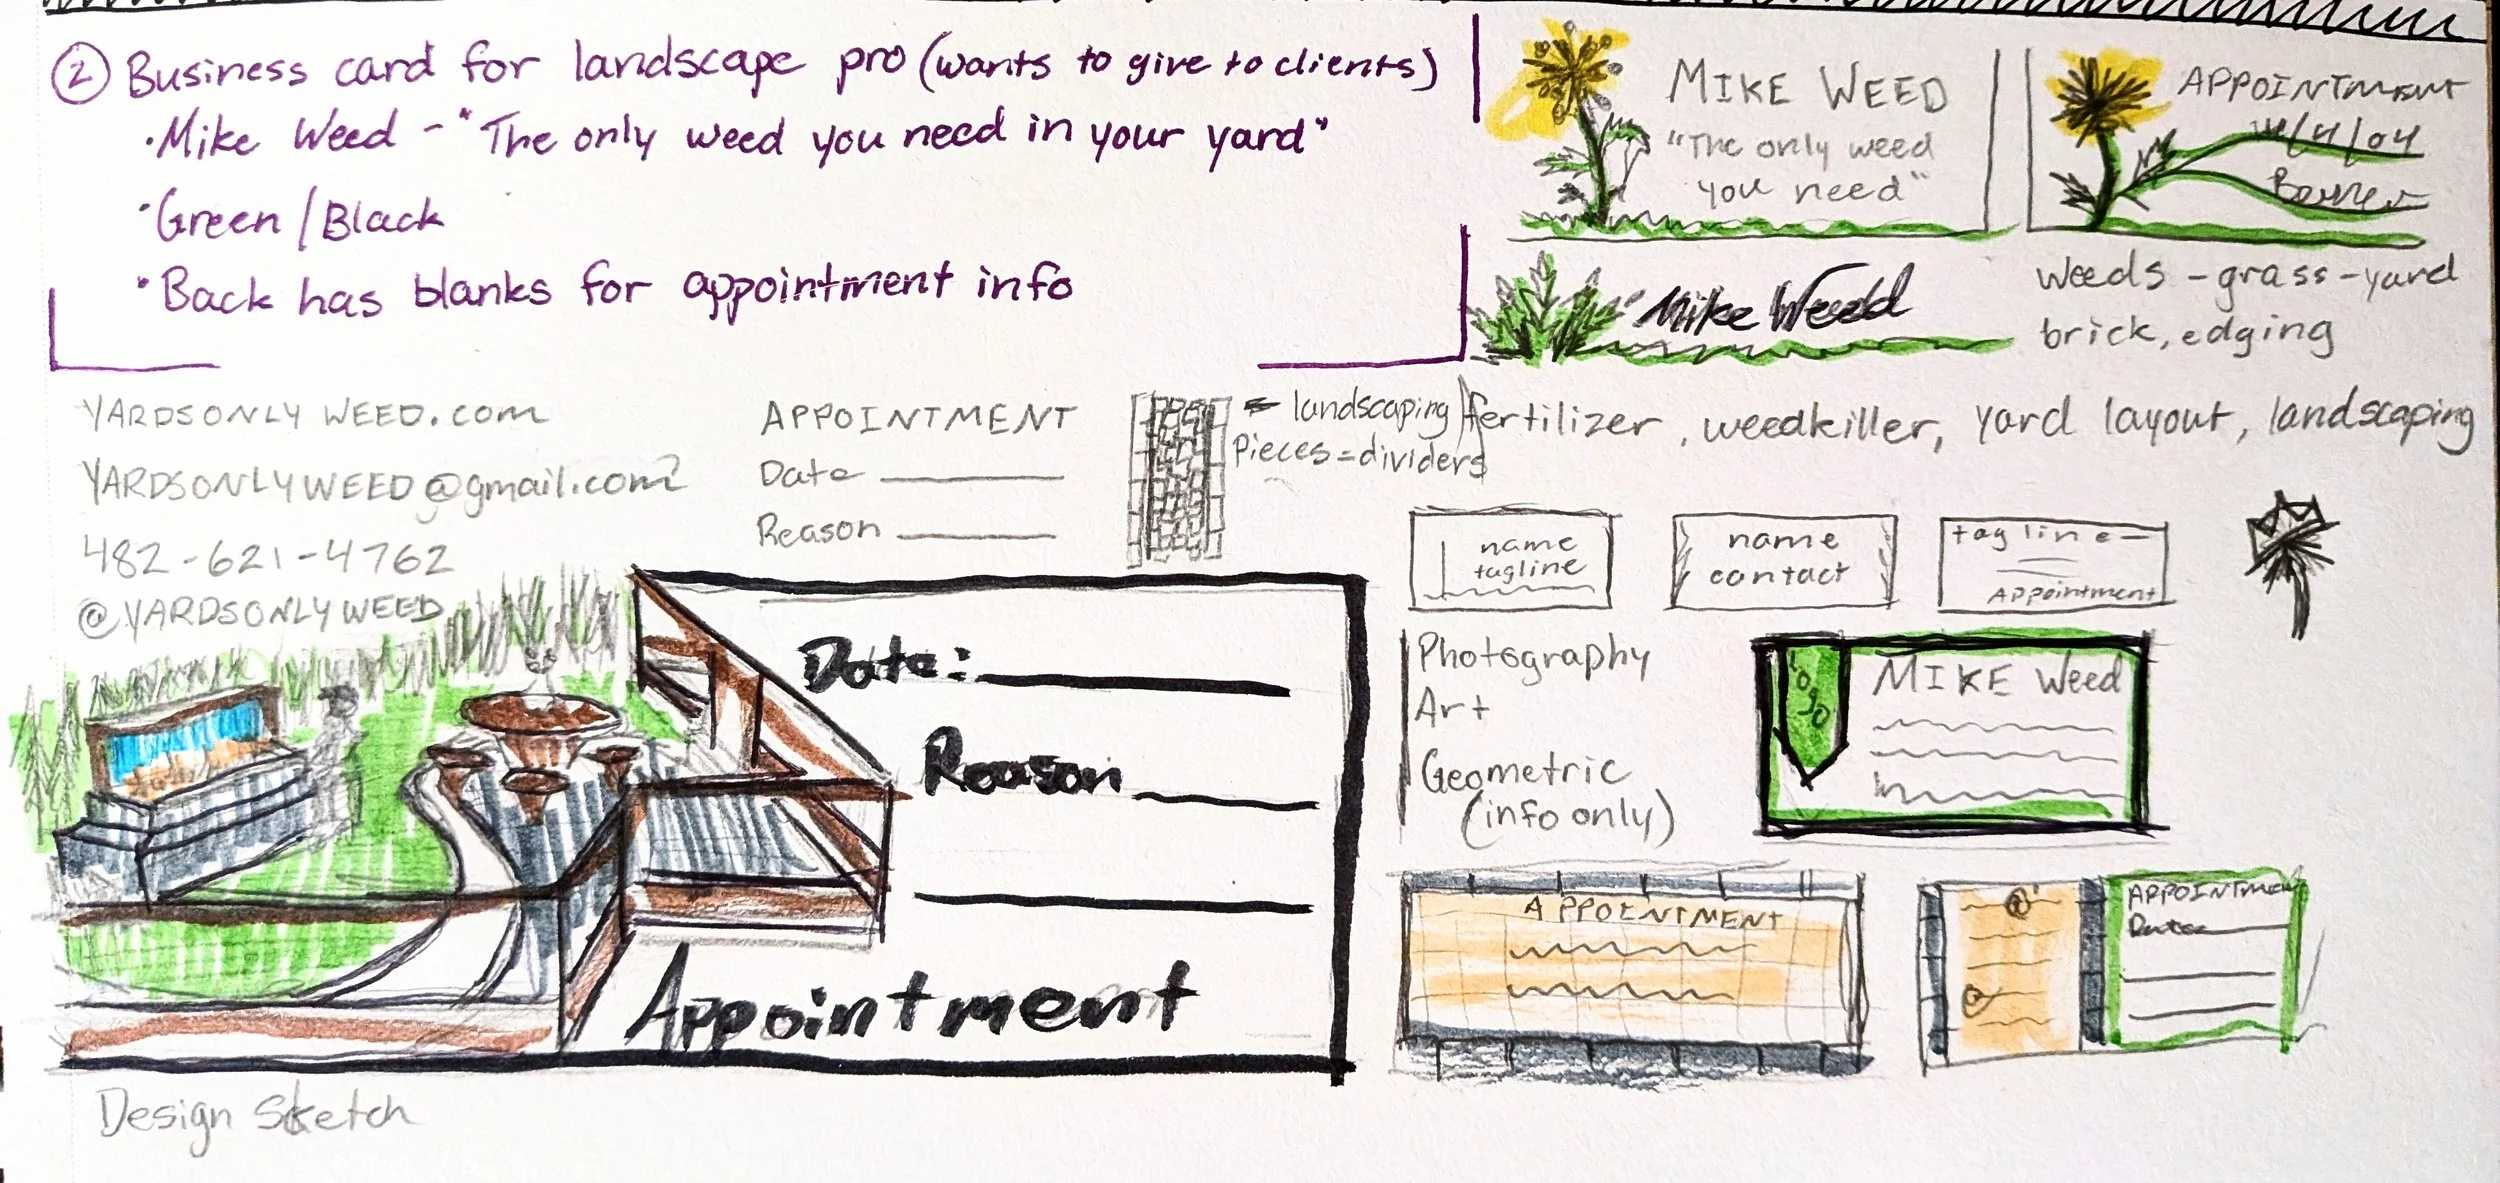 ② Business card for landscape pro (wants to give to clients)
• Mike Weed - "The only weed you need in your yard"
• Green / Black
• Back has blanks for appointment info
MIKE WEED
"The only weed
you need"
APPOINTMENT
Mike Weed
Weeds - grass - yard
brick, edging
fertilizer, weedkiller, yard layout, landscaping
YARDSONLYWEED.com
YARDSONLYWEED@gmail.com?
482-621-4762
@YARDSONLYWEED
APPOINTMENT
Date
Reason
= landscaping
Pieces = dividers
name
tagline
name
contact
tagline
Appointment
Photography
Art
Geometric
(info only)
logo
MIKE Weed
Date:
Reason
Appointment
APPOINTMENT
APPOINTMENT
Date
Design Sketch